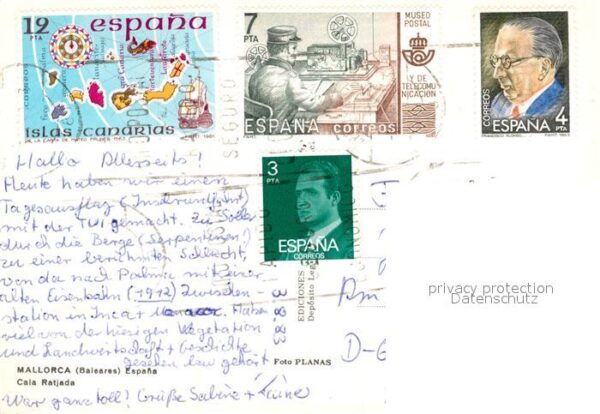 12 PTA españa
correos
islas canarias
DE LA CARTA DE MATEO PRUNES 1563
7 PTA
MUSEO POSTAL
Y DE TELECOMUNICACION
ESPAÑA correos
CORREOS
ESPAÑA 4 PTA
3 PTA
ESPAÑA
CORREOS
SEGURO
Hallo Allerseits!
Heute haben wir einen
Tagesausflug (Inselrundfahrt)
mit der TUI gemacht. Zu
durch die Berge (Serpentinen)
zu einer berühmten Schlucht,
von da nach Palma mit einer
alten Eisenbahn (1912) Zwischen-
station in Inca. Haben
viel von der hiesigen Vegetation
und Landwirtschaft + Geschichte
gesehen bzw gehört
War ganz toll! Grüße Sabine +
MALLORCA (Baleares) España
Cala Ratjada
Foto PLANAS
EDICIONES
Depósito Legal
Am
D-6
privacy protection
Datenschutz